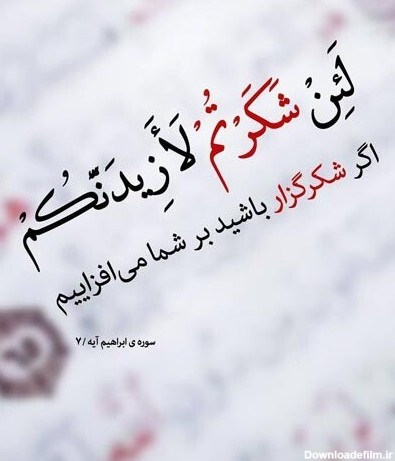 لَئِنْ شَكَرْتُمْ لَأَزِيدَنَّكُمْ
اگر شکرگزار باشید بر شما می‌افزاییم
سوره ی ابراهیم آیه / ۷
Downloadefilm.ir